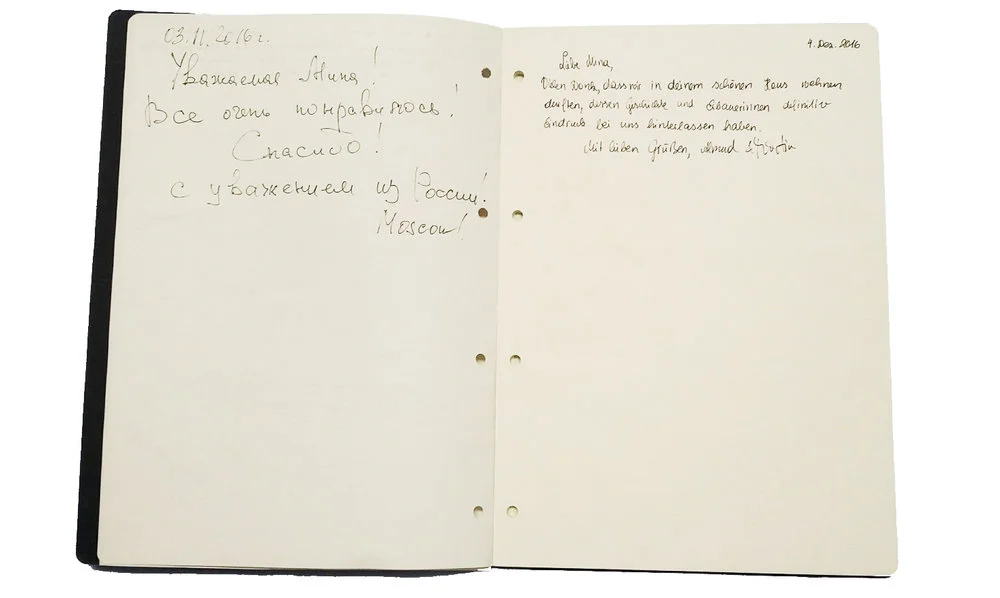 03.11.2016 г.
Уважаемая Мина!
Все очень понравилось!
Спасибо!
с уважением из России!
Moscow!
4. Dez. 2016
Liebe Mina,
Vielen Dank, dass wir in deinem schönen Haus wohnen
durften, dessen Geschichte und Erbauerinnen definitiv
Eindruck bei uns hinterlassen haben.
Mit lieben Grüßen,